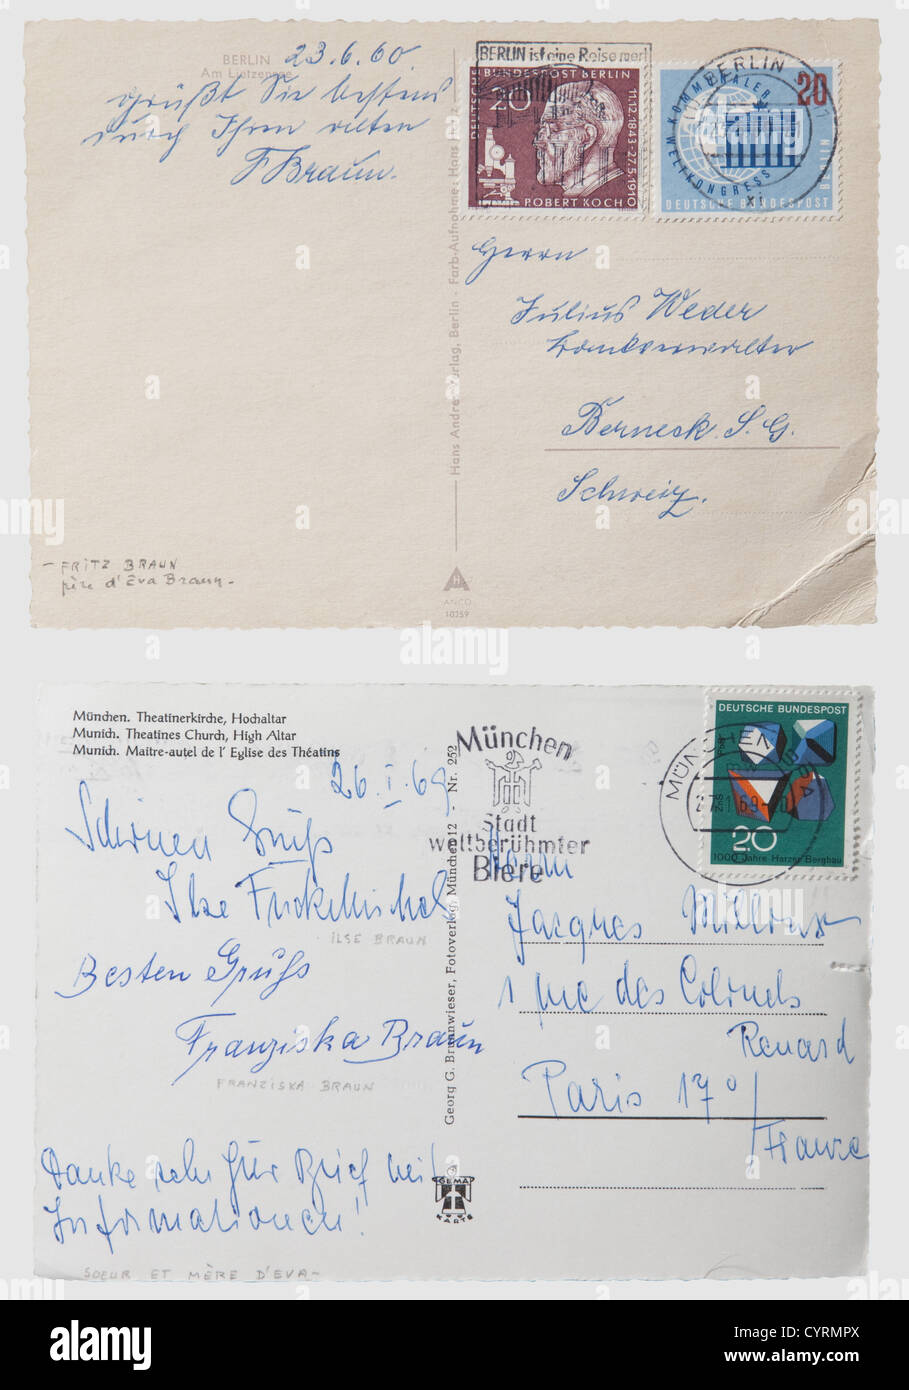 BERLIN
Am Lietzensee
23.6.60.
grüßt Sie bestens
durch Ihren alten
F Braun.
BERLIN ist eine Reise wert
DEUTSCHE BUNDESPOST BERLIN
20
11.12.1843-27.5.1910
ROBERT KOCH
BERLIN
KOMMUNALER
WELTKONGRESS
20
DEUTSCHE BUNDESPOST
Herrn
Julius Weder
Berneck. S. G.
Schweiz.
Hans Andres Verlag, Berlin - Farb-Aufnahme: Hans
- FRITZ BRAUN
père d'Eva Braun -
ANCO
München. Theatinerkirche, Hochaltar
Munich. Theatines Church, High Altar
Munich. Maitre-autel de l' Eglise des Théatins
26.I.69
Schönen Gruß
Ilse
ILSE BRAUN
Besten Gruß
Franziska Braun
FRANZISKA BRAUN
Danke sehr für Brief mit
Informationen!
SOEUR ET MÈRE D'EVA -
Georg G. Brunnwieser, Fotoverlag, München 12 - Nr. 252
GEMA
KARTE
München
Stadt
weltberühmter
Biere
MÜNCHEN
DEUTSCHE BUNDESPOST
20
1000 Jahre Harzer Bergbau
Herrn
Jacques
1 rue des Colonels
Renard
Paris 17°
France
alamy
alamy
Image ID: CYRMPX
www.alamy.com